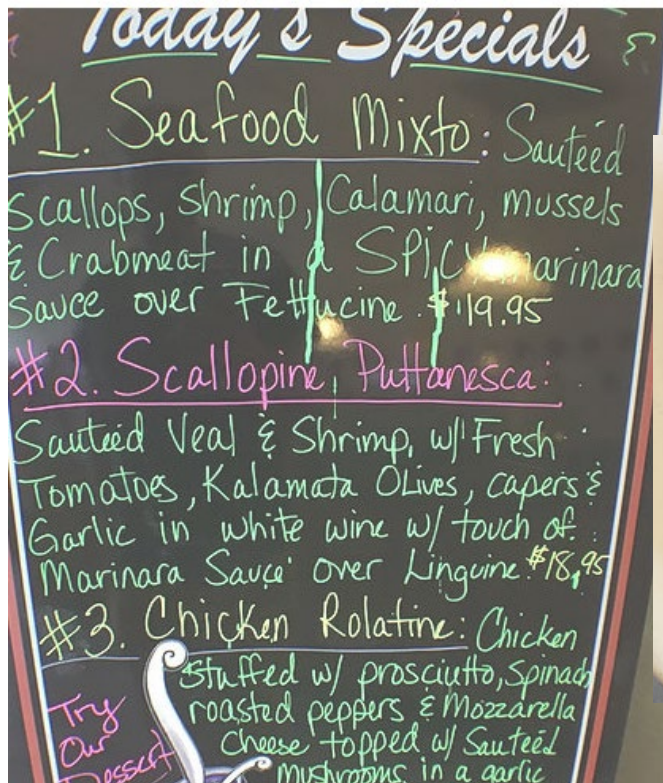 Today's Specials
#1. Seafood Mixto: Sauteéd
Scallops, Shrimp, Calamari, mussels
& Crabmeat in a SPicy marinara
Sauce over Fettucine. $19.95
#2. Scallopine Puttanesca:
Sauteéd Veal & Shrimp, w/ Fresh
Tomatoes, Kalamata Olives, capers &
Garlic in white wine w/ touch of
Marinara Sauce over Linguine. $18.95
#3. Chicken Rolatine: Chicken
Stuffed w/ prosciutto, Spinach
roasted peppers & Mozzarella
Cheese topped w/ Sauteéd
Mushrooms in a garlic
Try
Our
Dessert